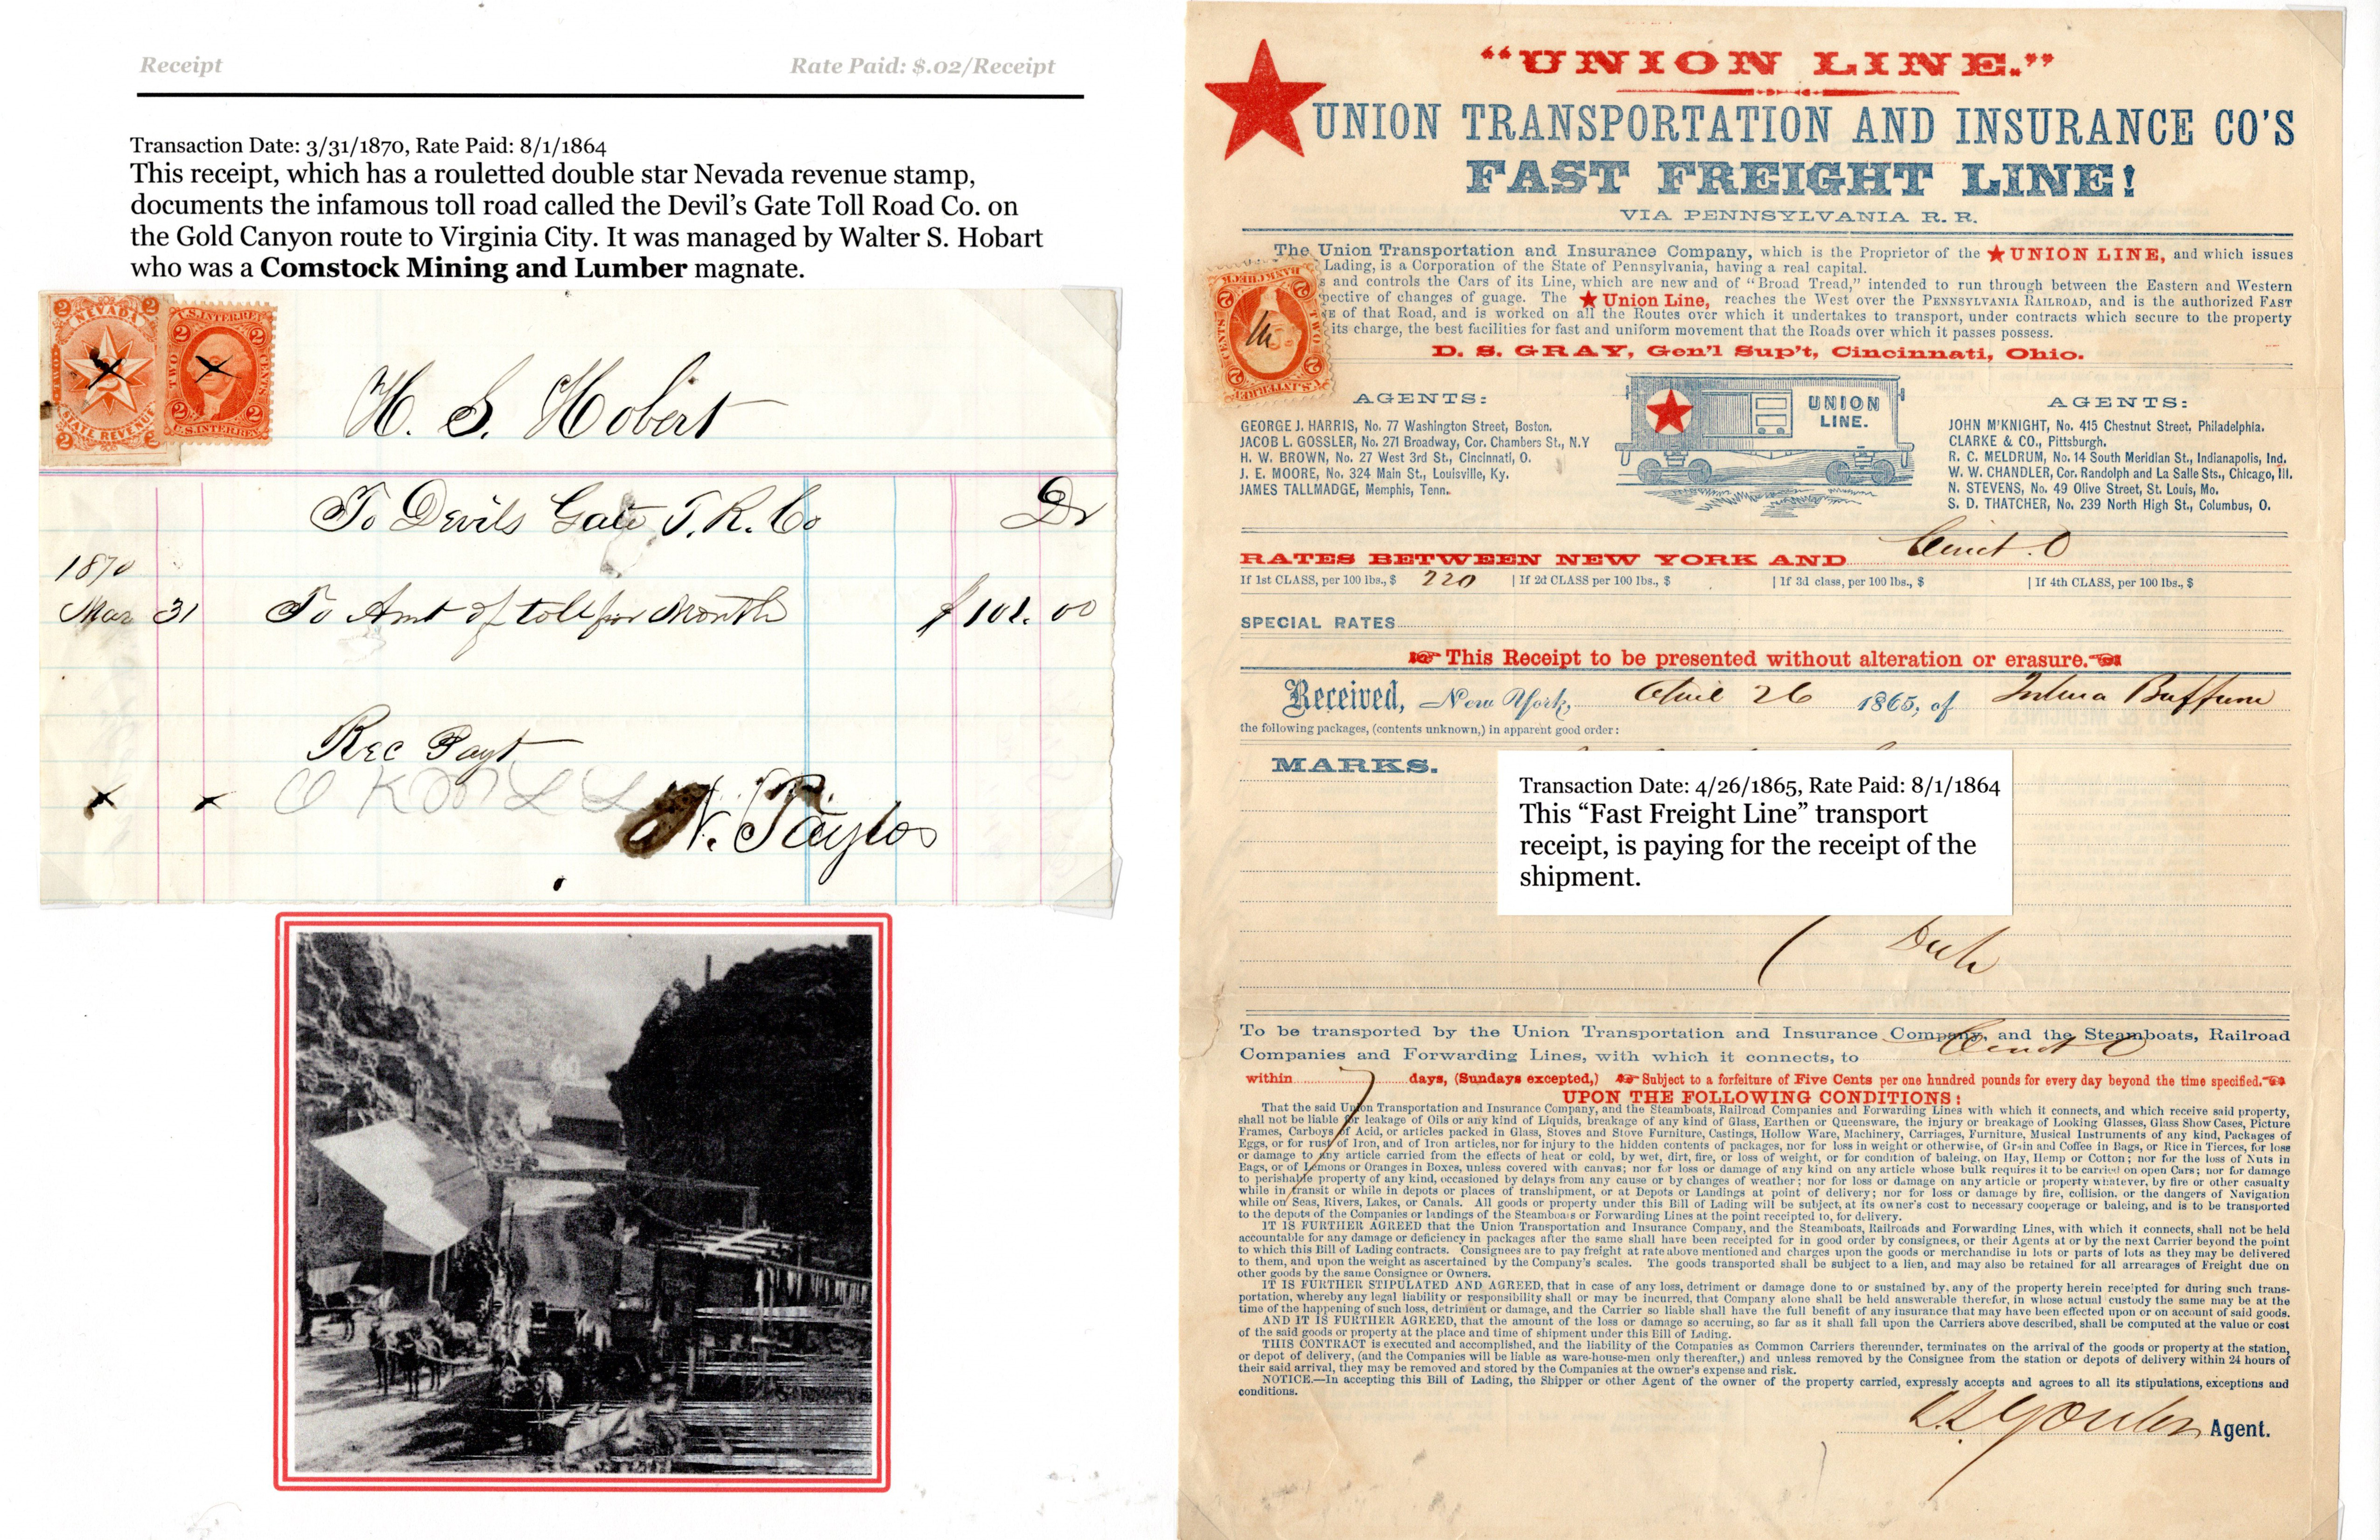 Receipt
Rate Paid: $.02/Receipt
Transaction Date: 3/31/1870, Rate Paid: 8/1/1864
This receipt, which has a rouletted double star Nevada revenue stamp,
documents the infamous toll road called the Devil's Gate Toll Road Co. on
the Gold Canyon route to Virginia City. It was managed by Walter S. Hobart
who was a Comstock Mining and Lumber magnate.
2 2
NEVADA
TWO
2
STATE REVENUE
2 2
U.S. INTER. REV.
TWO CENTS
2 2
U.S. INTER. REV.
H. S. Hobert
To Devils Gate T. R. Co Dr
1870
Mar 31 To Amt of toll for Month $ 101.00
Rec Payt
O K
N. Taylor
"UNION LINE."
UNION TRANSPORTATION AND INSURANCE CO'S
FAST FREIGHT LINE!
VIA PENNSYLVANIA R. R.
The Union Transportation and Insurance Company, which is the Proprietor of the ★ UNION LINE, and which issues
Lading, is a Corporation of the State of Pennsylvania, having a real capital.
s and controls the Cars of its Line, which are new and of "Broad Tread," intended to run through between the Eastern and Western
pective of changes of guage. The ★ Union Line, reaches the West over the PENNSYLVANIA RAILROAD, and is the authorized FAST
NE of that Road, and is worked on all the Routes over which it undertakes to transport, under contracts which secure to the property
its charge, the best facilities for fast and uniform movement that the Roads over which it passes possess.
D. S. GRAY, Gen'l Sup't, Cincinnati, Ohio.
AGENTS:
GEORGE J. HARRIS, No. 77 Washington Street, Boston.
JACOB L. GOSSLER, No. 271 Broadway, Cor. Chambers St., N.Y
H. W. BROWN, No. 27 West 3rd St., Cincinnati, O.
J. E. MOORE, No. 324 Main St., Louisville, Ky.
JAMES TALLMADGE, Memphis, Tenn.
UNION
LINE.
AGENTS:
JOHN M'KNIGHT, No. 415 Chestnut Street, Philadelphia.
CLARKE & CO., Pittsburgh.
R. C. MELDRUM, No. 14 South Meridian St., Indianapolis, Ind.
W. W. CHANDLER, Cor. Randolph and La Salle Sts., Chicago, Ill.
N. STEVENS, No. 49 Olive Street, St. Louis, Mo.
S. D. THATCHER, No. 239 North High St., Columbus, O.
RATES BETWEEN NEW YORK AND Cinct. O
If 1st CLASS, per 100 lbs., $ 220 | If 2d CLASS per 100 lbs., $ | If 3d class, per 100 lbs., $ | If 4th CLASS, per 100 lbs., $
SPECIAL RATES
This Receipt to be presented without alteration or erasure.
Received, New York, April 26 1865, of Buffum
the following packages, (contents unknown,) in apparent good order:
MARKS.
Transaction Date: 4/26/1865, Rate Paid: 8/1/1864
This "Fast Freight Line" transport
receipt, is paying for the receipt of the
shipment.
To be transported by the Union Transportation and Insurance Company, and the Steamboats, Railroad
Companies and Forwarding Lines, with which it connects, to Cinct O
within 7 days, (Sundays excepted,) Subject to a forfeiture of Five Cents per one hundred pounds for every day beyond the time specified.
UPON THE FOLLOWING CONDITIONS:
That the said Union Transportation and Insurance Company, and the Steamboats, Railroad Companies and Forwarding Lines with which it connects, and which receive said property,
shall not be liable for leakage of Oils or any kind of Liquids, breakage of any kind of Glass, Earthen or Queensware, the injury or breakage of Looking Glasses, Glass Show Cases, Picture
Frames, Carboys of Acid, or articles packed in Glass, Stoves and Stove Furniture, Castings, Hollow Ware, Machinery, Carriages, Furniture, Musical Instruments of any kind, Packages of
Eggs, or for rust of Iron, and of Iron articles, nor for injury to the hidden contents of packages, nor for loss in weight or otherwise, of Grain and Coffee in Bags, or Rice in Tierces, for loss
or damage to any article carried from the effects of heat or cold, by wet, dirt, fire, or loss of weight, or for condition of baleing, on Hay, Hemp or Cotton; nor for the loss of Nuts in
Bags, or of Lemons or Oranges in Boxes, unless covered with canvas; nor for loss or damage of any kind on any article whose bulk requires it to be carried on open Cars; nor for damage
to perishable property of any kind, occasioned by delays from any cause or by changes of weather; nor for loss or damage on any article or property whatever, by fire or other casualty
while in transit or while in depots or places of transhipment, or at Depots or Landings at point of delivery; nor for loss or damage by fire, collision, or the dangers of Navigation
while on Seas, Rivers, Lakes, or Canals. All goods or property under this Bill of Lading will be subject, at its owner's cost to necessary cooperage or baleing, and is to be transported
to the depots of the Companies or landings of the Steamboats or Forwarding Lines at the point receipted to, for delivery.
IT IS FURTHER AGREED that the Union Transportation and Insurance Company, and the Steamboats, Railroads and Forwarding Lines, with which it connects, shall not be held
accountable for any damage or deficiency in packages after the same shall have been receipted for in good order by consignees, or their Agents at or by the next Carrier beyond the point
to which this Bill of Lading contracts. Consignees are to pay freight at rate above mentioned and charges upon the goods or merchandise in lots or parts of lots as they may be delivered
to them, and upon the weight as ascertained by the Company's scales. The goods transported shall be subject to a lien, and may also be retained for all arrearages of Freight due on
other goods by the same Consignee or Owners.
IT IS FURTHER STIPULATED AND AGREED, that in case of any loss, detriment or damage done to or sustained by, any of the property herein receipted for during such trans-
portation, whereby any legal liability or responsibility shall or may be incurred, that Company alone shall be held answerable therefor, in whose actual custody the same may be at the
time of the happening of such loss, detriment or damage, and the Carrier so liable shall have the full benefit of any insurance that may have been effected upon or on account of said goods.
AND IT IS FURTHER AGREED, that the amount of the loss or damage so accruing, so far as it shall fall upon the Carriers above described, shall be computed at the value or cost
of the said goods or property at the place and time of shipment under this Bill of Lading.
THIS CONTRACT is executed and accomplished, and the liability of the Companies as Common Carriers thereunder, terminates on the arrival of the goods or property at the station,
or depot of delivery, (and the Companies will be liable as ware-house-men only thereafter,) and unless removed by the Consignee from the station or depots of delivery within 24 hours of
their said arrival, they may be removed and stored by the Companies at the owner's expense and risk.
NOTICE.—In accepting this Bill of Lading, the Shipper or other Agent of the owner of the property carried, expressly accepts and agrees to all its stipulations, exceptions and
conditions.
Agent.